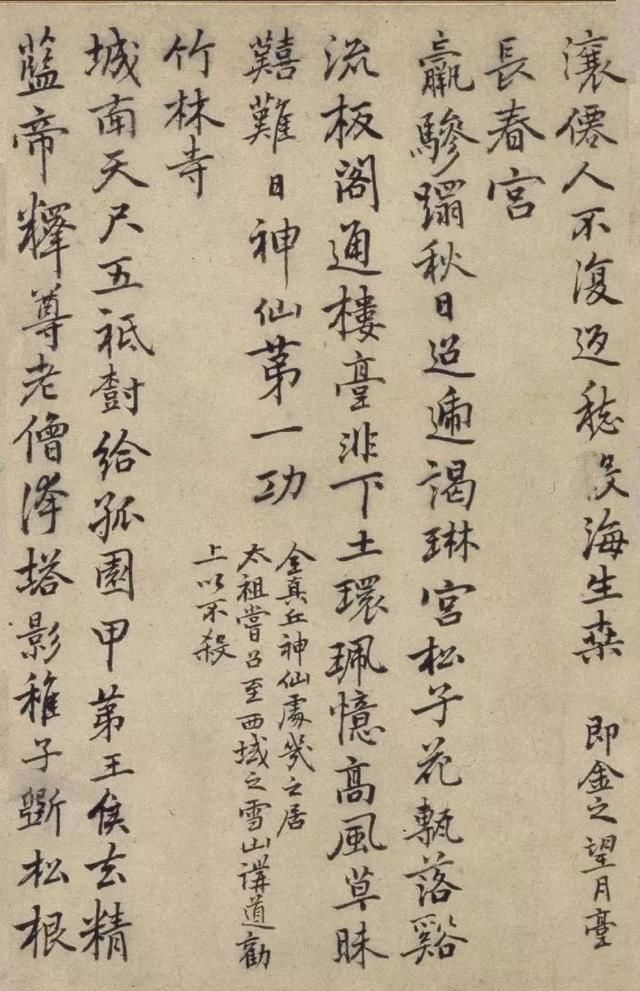 瀼僊人不復返見海生桑 即金之望月臺
長春宮
羸驂蹋秋日迢遞謁琳宮松子花甎落谿
流板閣通樓臺非下土環珮憶高風草昧
囏難日神仙第一功 全真丘神仙處幾之居
太祖嘗召至西域之雪山講道勸
上以不殺
竹林寺
城南天尺五祗樹給孤園甲第王侯去精
藍帝釋尊老僧塔影稚子斲松根